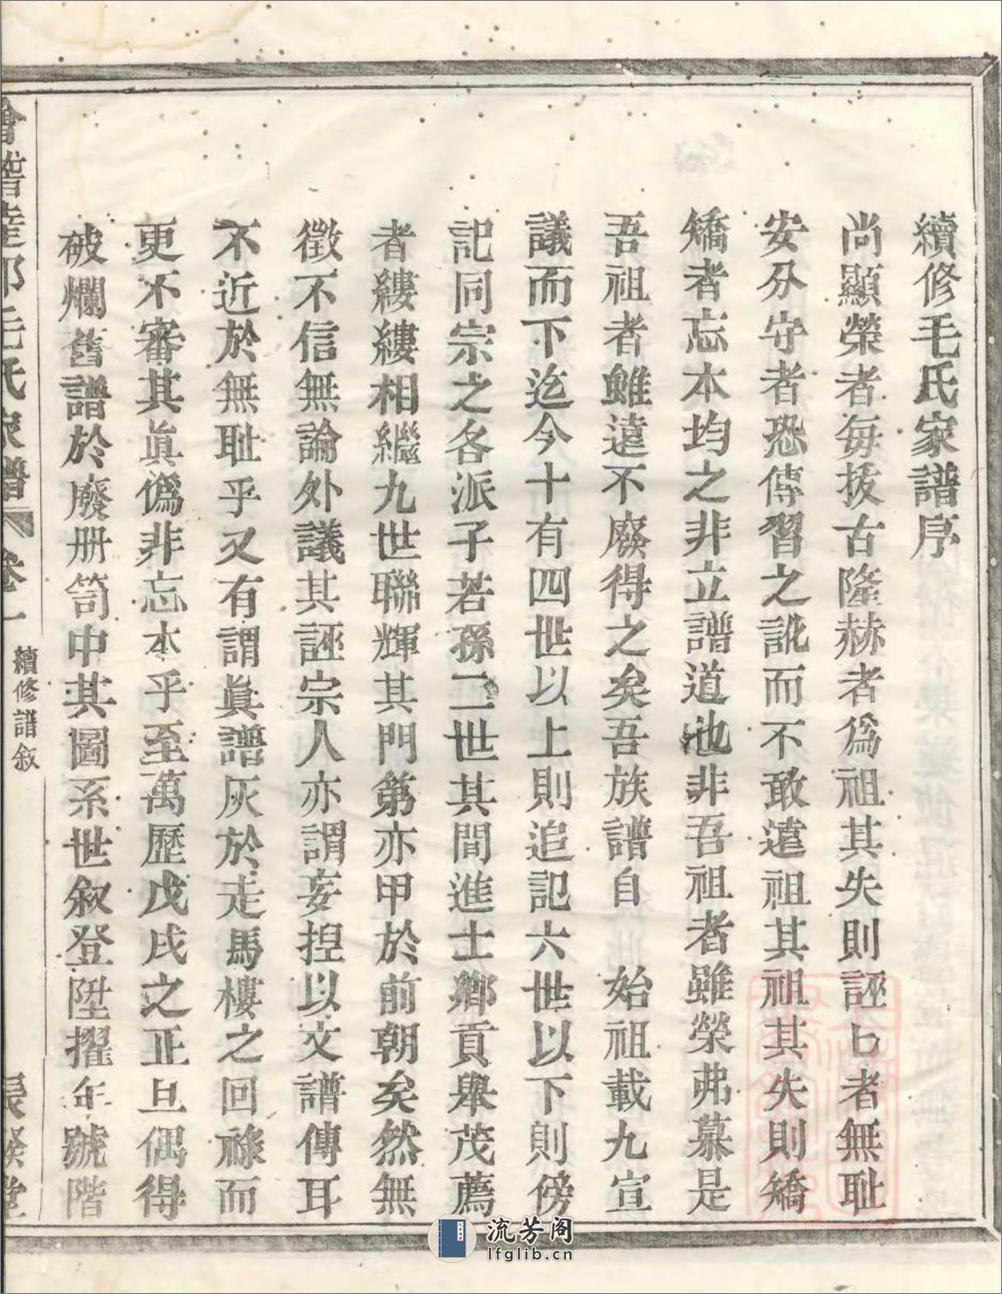 續修毛氏家譜序
尚顯榮者每援古隆赫者為祖其失則誣匕者無耻
安分守者恐傳習之訛而不敢遠祖其祖其失則矯
矯者忘本均之非立譜道也非吾祖者雖榮弗慕是
吾祖者雖遠不廢得之矣吾族譜自 始祖載九宣
議而下迄今十有四世以上則追記六世以下則傍
記同宗之各派子若孫二世其間進士鄉貢舉茂薦
者縷縷相繼九世聯輝其門第亦甲於前朝矣然無
徵不信無論外議其誣宗人亦謂妄揑以文譜傳耳
不近於無耻乎又有謂眞譜灰於走馬樓之回祿而
更不審其眞僞非忘本乎至萬歷戊戌之正旦偶得
破爛舊譜於廢册笥中其圖系世叙登陞擢年號階
毛氏家譜 卷一 續修譜叙
流芳阁
lfglib.cn